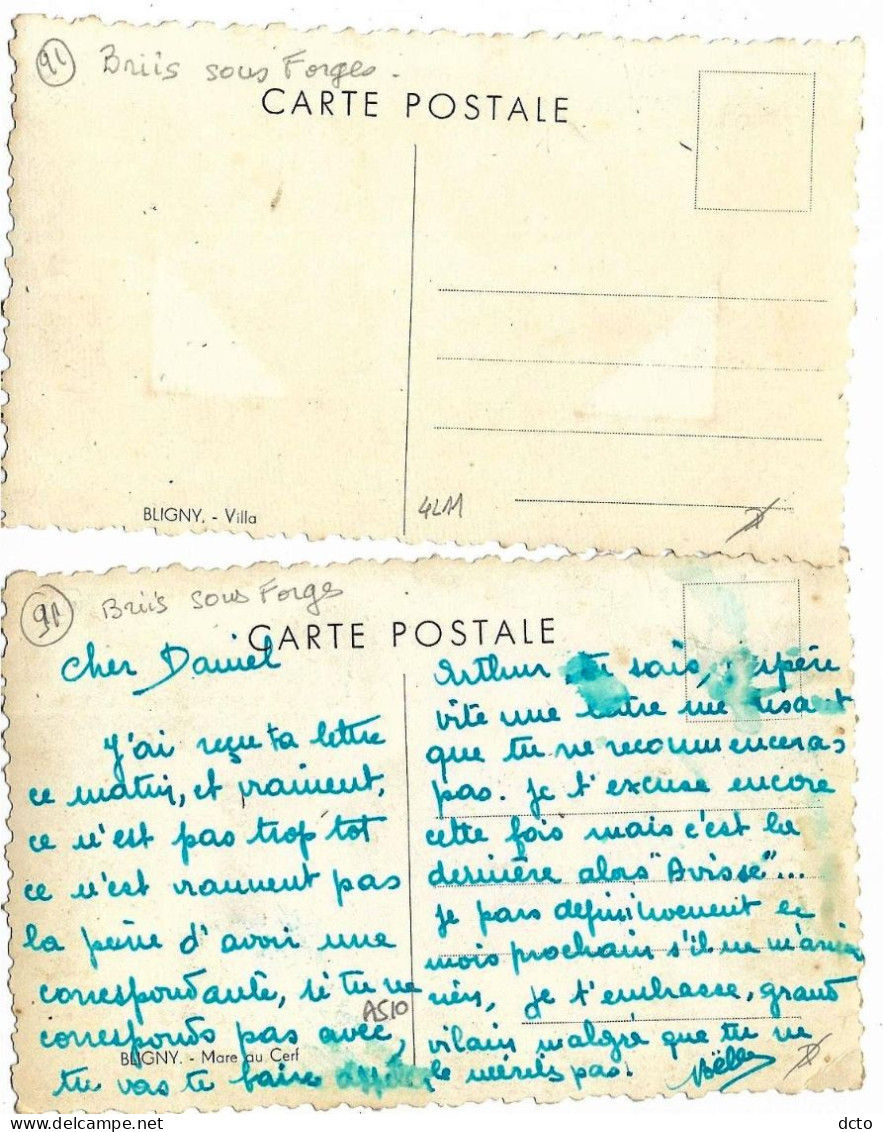 91 Briis sous Forges.
CARTE POSTALE
BLIGNY. - Villa
4211
91 Briis sous Forges
CARTE POSTALE
Cher Daniel
J'ai reçu ta lettre
ce matin, et vraiment,
ce n'est pas trop tot
ce n'est vraiment pas
la peine d'avoir une
correspondante, si tu ne
corresponds pas avec,
A510
BLIGNY. - Mare au Cerf
tu vas te faire
Arthur, tu sais,
vite une lettre me disant
que tu ne recommenceras
pas. Je t'excuse encore
cette fois mais c'est la
dernière alors "Avisse"...
Je pars définitivement le
mois prochain s'il ne m'arrive
rien, je t'embrasse, grand
vilain malgré que tu ne
le mérites pas.
Noëlle
dcto